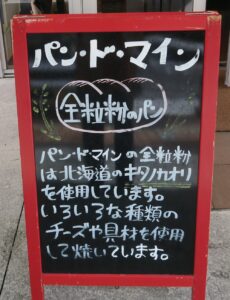 パン・ド・マイン
全粒粉のパン
パン・ド・マインの全粒粉
は北海道のキタノカオリ
を使用しています。
いろいろな種類の
チーズや具材を使用
して焼いています。